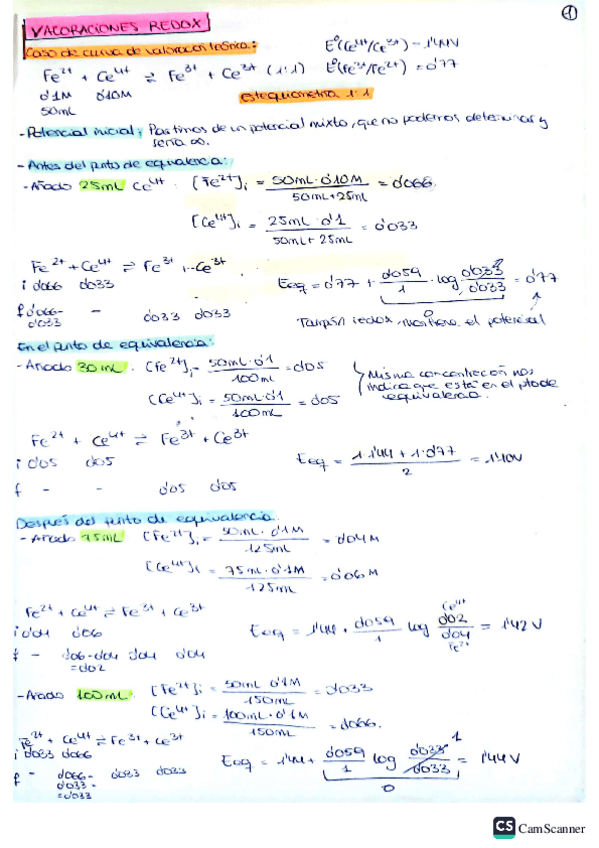 1
VALORACIONES REDOX
Caso de curva de valoración teórica: E°(Ce⁴⁺/Ce³⁺) = 1'44V
Fe²⁺ + Ce⁴⁺ ⇌ Fe³⁺ + Ce³⁺ (1:1) E°(Fe³⁺/Fe²⁺) = 0'77
0'1M 0'10M estequiometría 1:1
50mL
- Potencial inicial: Partimos de un potencial mixto, que no podemos determinar y
sería ∞.
- Antes del punto de equivalencia:
- Añado 25mL Ce⁴⁺: [Fe²⁺]i = 50mL·0'10M / 50mL+25mL = 0'066
[Ce⁴⁺]i = 25mL·0'1 / 50mL+25mL = 0'033
Fe²⁺ + Ce⁴⁺ ⇌ Fe³⁺ + Ce³⁺
i 0'066 0'033 Eeq = 0'77 + 0'059/1 · log 0'033/0'033 = 0'77
f 0'066-0'033 - 0'033 0'033 0
Tampón redox, mantiene el potencial
En el punto de equivalencia:
- Añado 50mL: [Fe²⁺]i = 50mL·0'1 / 100mL = 0'05 Misma concentración nos
indica que está en el pto de
[Ce⁴⁺]i = 50mL·0'1 / 100mL = 0'05 equivalencia.
Fe²⁺ + Ce⁴⁺ ⇌ Fe³⁺ + Ce³⁺
i 0'05 0'05 Eeq = 1·1'44 + 1·0'77 / 2 = 1'10V
f - - 0'05 0'05
Después del punto de equivalencia.
- Añado 75mL [Fe²⁺]i = 50mL·0'1M / 125mL = 0'04M
[Ce⁴⁺]i = 75mL·0'1M / 125mL = 0'06M
Fe²⁺ + Ce⁴⁺ ⇌ Fe³⁺ + Ce³⁺
i 0'04 0'06 Eeq = 1'44 + 0'059/1 log 0'02/0'04 = 1'42V
Ce⁴⁺
Fe²⁺
f - 0'06-0'04 0'04 0'04
=0'02
- Añado 100mL: [Fe²⁺]i = 50mL·0'1M / 150mL = 0'033
[Ce⁴⁺]i = 100mL·0'1M / 150mL = 0'066.
Fe²⁺ + Ce⁴⁺ ⇌ Fe³⁺ + Ce³⁺
i 0'033 0'066 Eeq = 1'44 + 0'059/1 log 0'033/0'033 = 1'44V
1
f - 0'066-0'033 0'033 0'033 0
=0'033
CS CamScanner